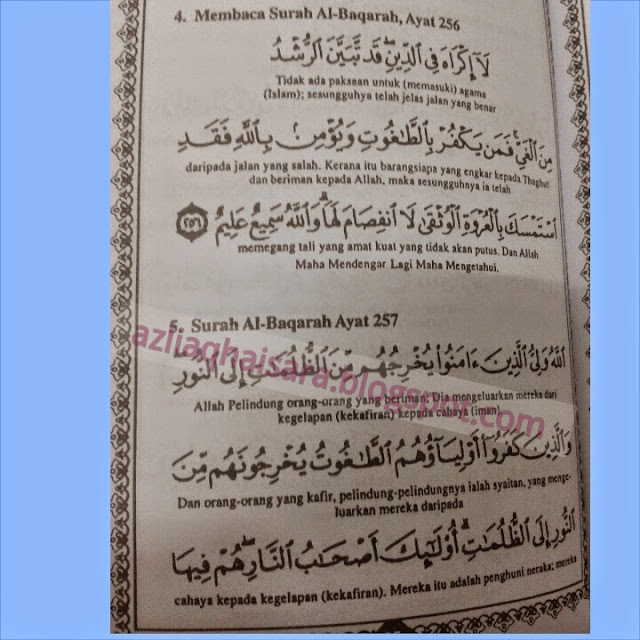 4. Membaca Surah Al-Baqarah, Ayat 256
لَآ إِكْرَاهَ فِى ٱلدِّينِ ۖ قَد تَّبَيَّنَ ٱلرُّشْدُ
Tidak ada paksaan untuk (memasuki) agama
(Islam); sesungguhya telah jelas jalan yang benar
مِنَ ٱلْغَىِّ ۚ فَمَن يَكْفُرْ بِٱلطَّٰغُوتِ وَيُؤْمِنۢ بِٱللَّهِ فَقَدِ
daripada jalan yang salah. Kerana itu barangsiapa yang engkar kepada Thaghut
dan beriman kepada Allah, maka sesungguhnya ia telah
ٱسْتَمْسَكَ بِٱلْعُرْوَةِ ٱلْوُثْقَىٰ لَا ٱنفِصَامَ لَهَا ۗ وَٱللَّهُ سَمِيعٌ عَلِيمٌ ٢٥٦
memegang tali yang amat kuat yang tidak akan putus. Dan Allah
Maha Mendengar Lagi Maha Mengetahui.
5. Surah Al-Baqarah Ayat 257
azliaghaisara.blogspot.com
ٱللَّهُ وَلِىُّ ٱلَّذِينَ ءَامَنُوا۟ يُخْرِجُهُم مِّنَ ٱلظُّلُمَٰتِ إِلَى ٱلنُّورِ ۖ
Allah Pelindung orang-orang yang beriman; Dia mengeluarkan mereka dari
kegelapan (kekafiran) kepada cahaya (iman).
وَٱلَّذِينَ كَفَرُوٓا۟ أَوْلِيَآؤُهُمُ ٱلطَّٰغُوتُ يُخْرِجُونَهُم مِّنَ
Dan orang-orang yang kafir, pelindung-pelindungnya ialah syaitan, yang menge-
luarkan mereka daripada
ٱلنُّورِ إِلَى ٱلظُّلُمَٰتِ ۗ أُو۟لَٰٓئِكَ أَصْحَٰبُ ٱلنَّارِ ۖ هُمْ فِيهَا
cahaya kepada kegelapan (kekafiran). Mereka itu adalah penghuni neraka; mereka